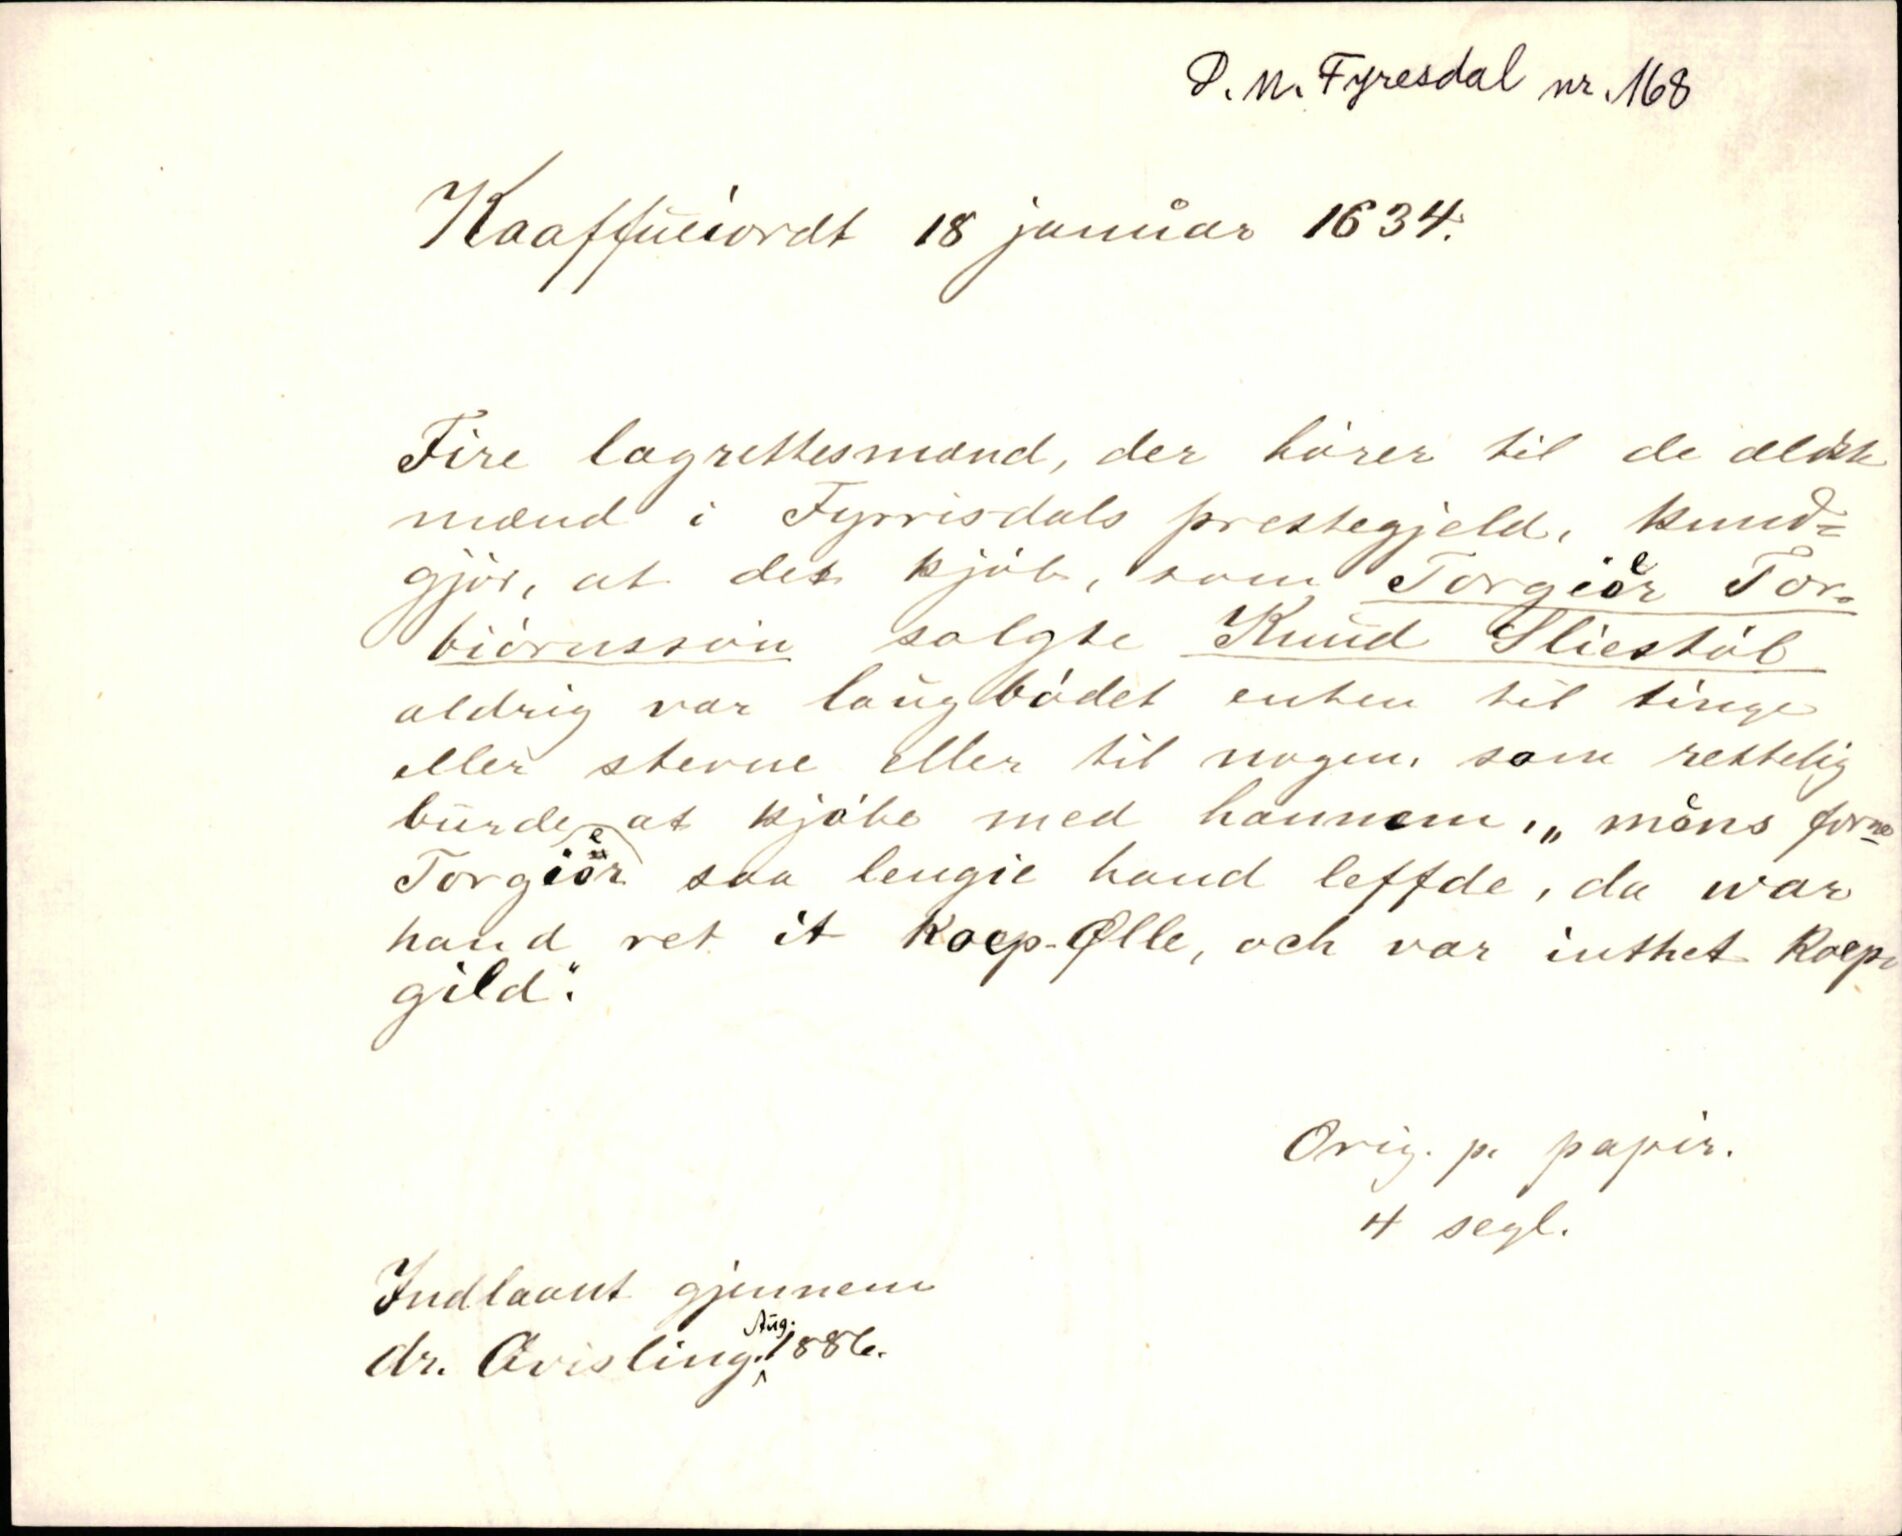 D. N. Fyresdal nr. 168
Kaaffueiordt 18 januar 1634.
Fire lagrettesmænd, der hörer til de ældste
mænd i Fyrrisdals prestegjeld, kund=
gjör, at det kjöb, som Torgier Tor-
biörnssön solgte Knud Sliestöl
aldrig var laugbödet enten til tinge
eller stevne eller til nogen, som rettelig
burde at kjöbe med hannem, „mens forne
Torgier saa lengie hand leffde, da war
hand ret it Kaep-Ølle, och var inthet Kaep-
gild“.
Orig. p. papir.
4 segl.
Indlaant gjennem
dr. Qvisling. Aug. 1886.